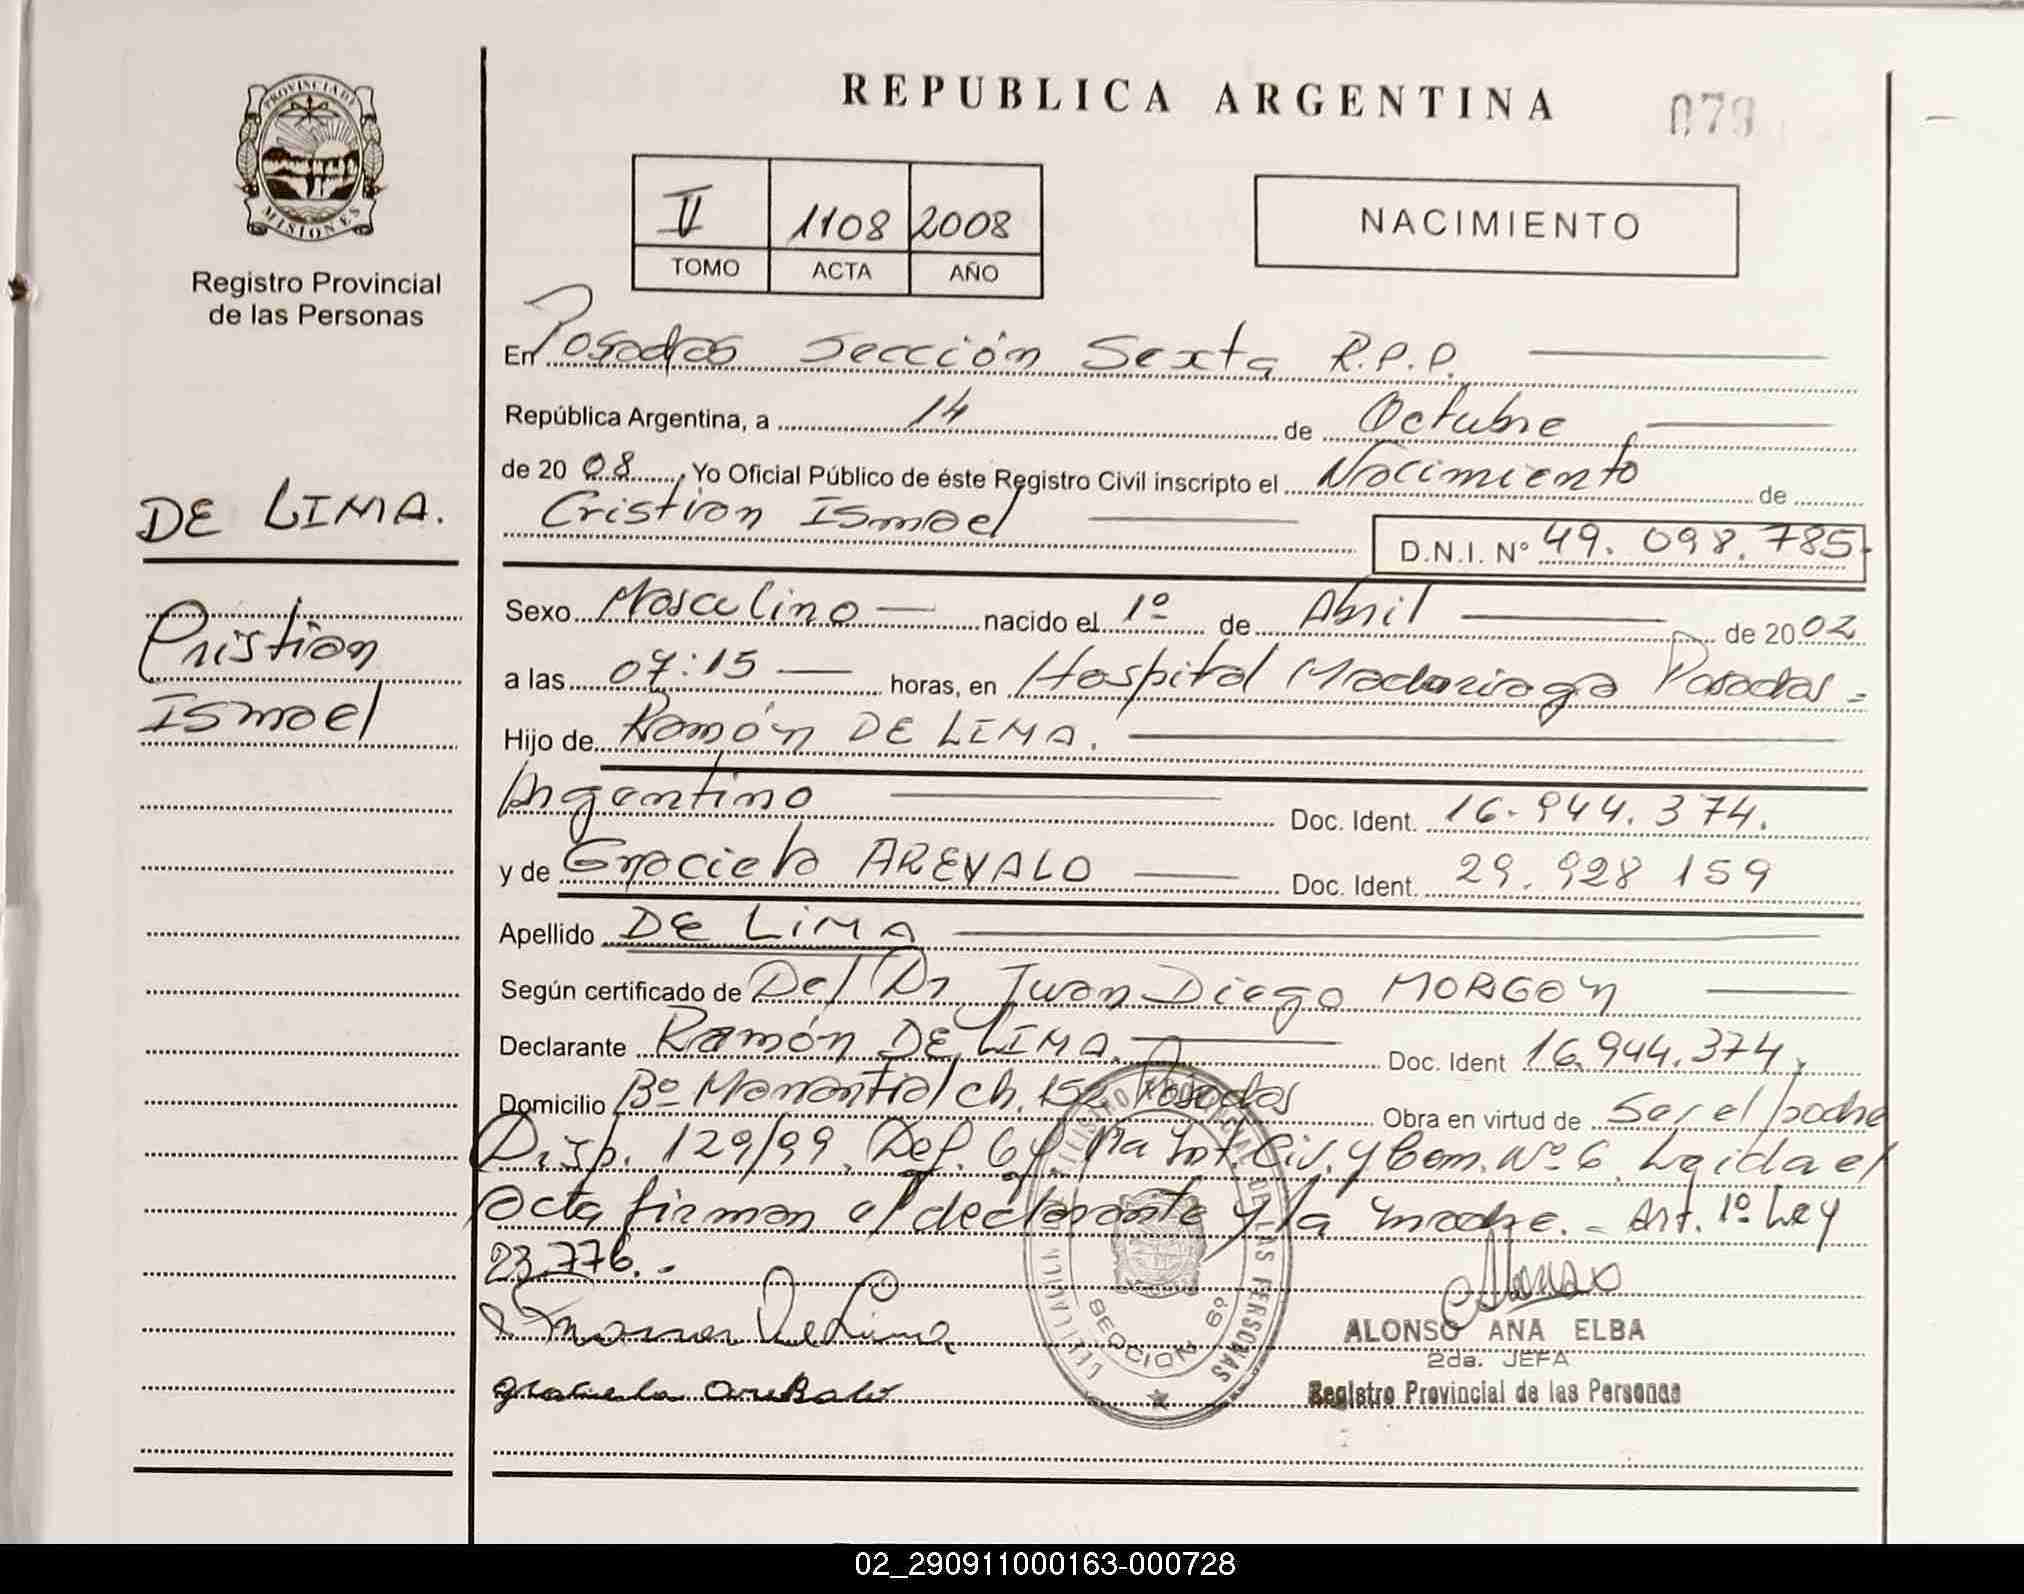 REPUBLICA ARGENTINA
079
PROVINCIA DE
MISIONES
Registro Provincial
de las Personas
1108 2008
TOMO ACTA AÑO
NACIMIENTO
En Posadas Sección Sexta R.P.P.
República Argentina, a 14 de Octubre
de 20 08, Yo Oficial Público de éste Registro Civil inscripto el Nacimiento de
Cristian Ismael
D.N.I. N° 49.098.785.
DE LIMA.
Cristian
Ismael
Sexo Masculino nacido el 1º de Abril de 2002
a las 07:15 horas, en Hospital Madariaga Posadas
Hijo de Ramón DE LIMA.
Argentino Doc. Ident. 16.944.374.
y de Graciela AREVALO Doc. Ident. 29.928 159
Apellido DE LIMA
Según certificado de Del Dr Juan Diego MORGON
Declarante Ramón DE LIMA. Doc. Ident 16.944.374,
Domicilio Bº Manantial ch. 152 Posadas Obra en virtud de Ser el padre
Disp. 129/99. Def. Civ. y Com. Nº 6. Leida el
acta firman el declarante y la madre. - Art. 1º Ley
23.776. -
De Lima
graciela
SECCION 6º
DE LAS PERSONAS
ALONSO ANA ELBA
2da. JEFA
Registro Provincial de las Personas
02_290911000163-000728